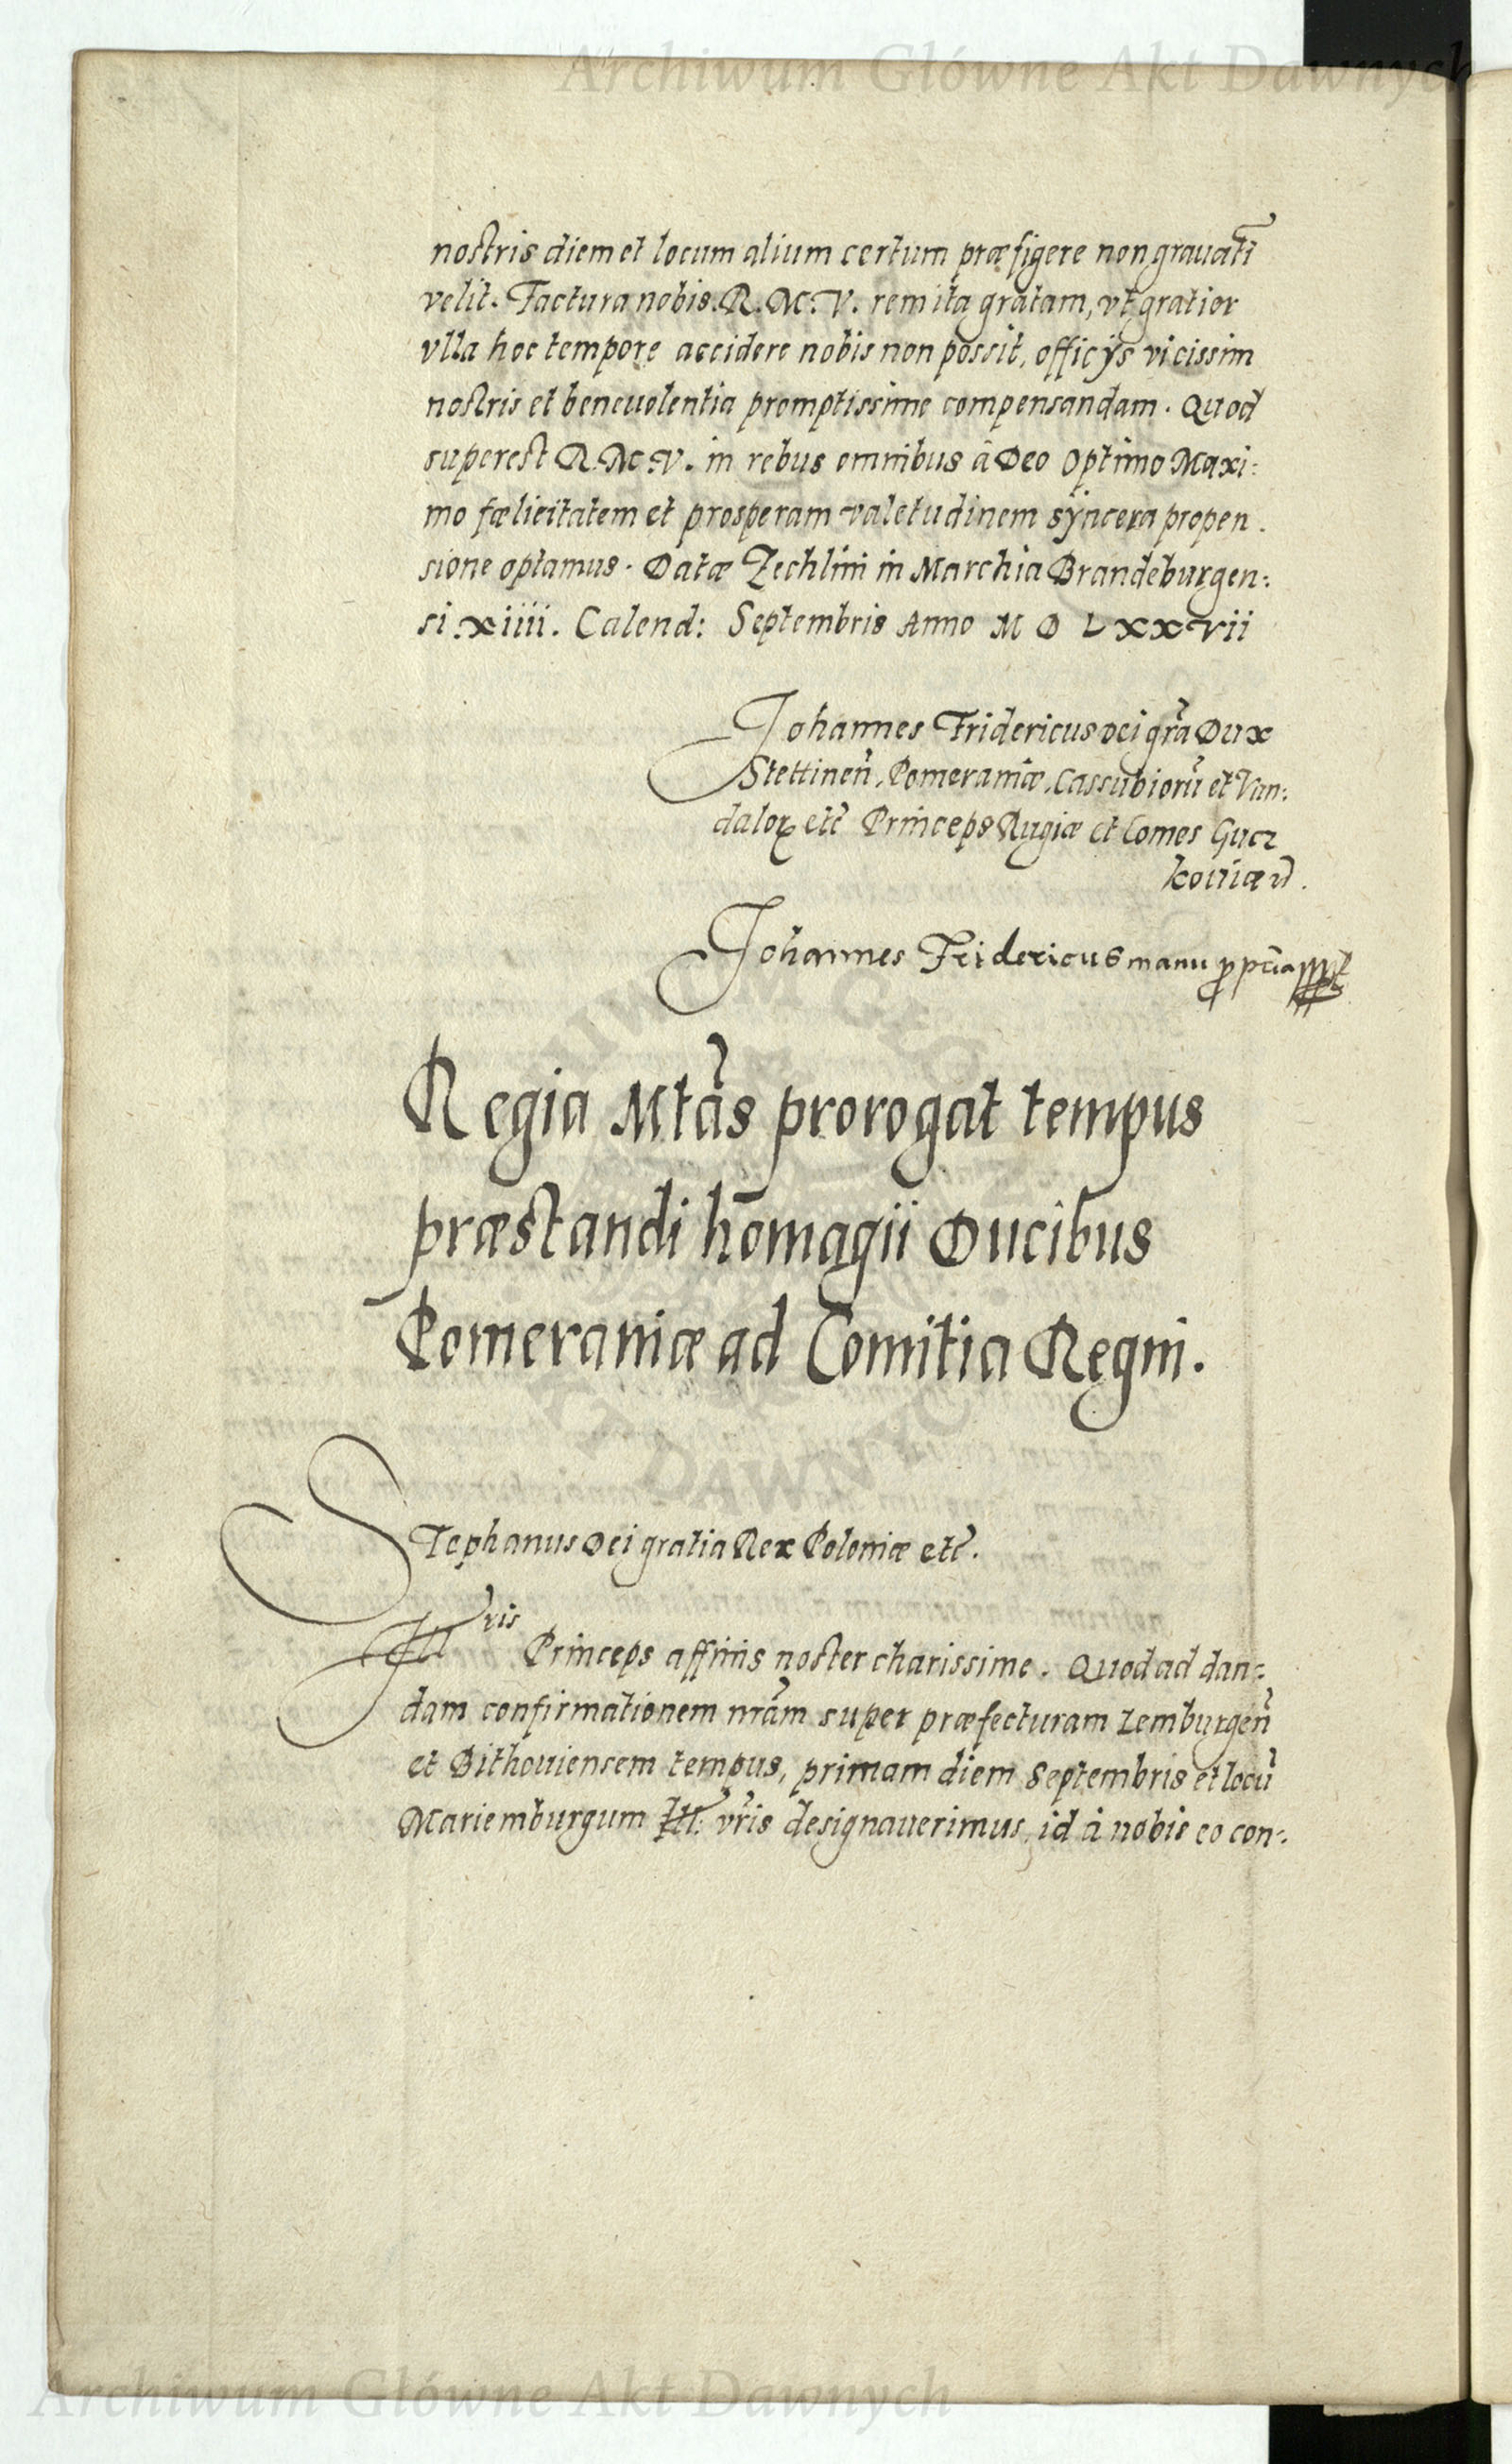 Archiwum Główne Akt Dawnych
nostris diem et locum alium certum præfigere non grauatĩ
velit. Factura nobis. R. M. V. rem ita gratam, vt gratior
vlla hoc tempore accidere nobis non possit, officÿs vicissim
nostris et beneuolentia promptissime compensandam. Quod
superest R. M. V. in rebus omnibus à Deo Optimo Maxi:
mo fœlicitatem et prosperam valetudinem sÿncera propen.
sione optamus. Datæ Zechlini in Marchia Brandeburgen:
si. xiiii. Calend: Septembris Anno M D L x x v i i
Johannes Fridericus Dei gr̃a Dux
Stettineñ, Pomeraniæ, Cassubiorũ et Van:
daloꝝ etc̃ Princeps Rugiæ et Comes Gucz
kouiæ
Johannes Fridericus manu ꝓpria
Regia Mtãs prorogat tempus
præstandi homagii Ducibus
Pomeraniæ ad Comitia Regni.
STephanus Dei gratia Rex Poloniæ etc̃.
Illris Princeps affinis noster charissime. Quod ad dan:
dam confirmationem nrãm super præfecturam Lemburgeñ
et Bithouiensem tempus, primam diem Septembris et locũ
Mariemburgum Ill: vr̃is designauerimus, id à nobis eo con:
Archiwum Główne Akt Dawnych